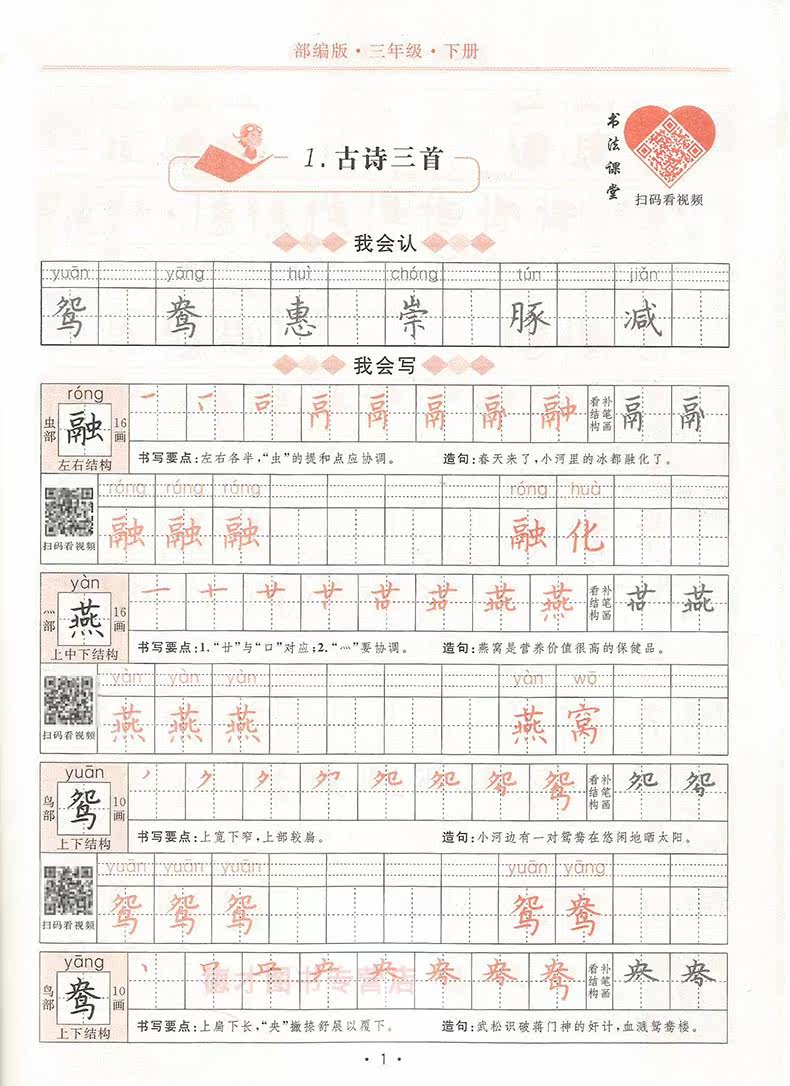 部编版·三年级·下册
书法课堂
1.古诗三首
扫码看视频
我会认
yuān yāng huì chóng tún jiǎn
鸳 鸯 惠 崇 豚 减
我会写
róng
虫部 融 16画
左右结构
看结构 补笔画
书写要点:左右各半,“虫”的提和点应协调。 造句:春天来了,小河里的冰都融化了。
róng róng róng róng huà
融 融 融 融 化
扫码看视频
yàn
灬部 燕 16画
上中下结构
看结构 补笔画
书写要点:1.“廿”与“口”对应;2.“灬”要协调。 造句:燕窝是营养价值很高的保健品。
yàn yàn yàn yàn wō
燕 燕 燕 燕 窝
扫码看视频
yuān
鸟部 鸳 10画
上下结构
看结构 补笔画
书写要点:上宽下窄,上部较扁。 造句:小河边有一对鸳鸯在悠闲地晒太阳。
yuān yuān yuān yuān yāng
鸳 鸳 鸳 鸳 鸯
扫码看视频
yāng
鸟部 鸯 10画
上下结构
看结构 补笔画
德才图书专营店
书写要点:上扁下长,“央”撇捺舒展以覆下。 造句:武松识破蒋门神的奸计,血溅鸳鸯楼。
·1·